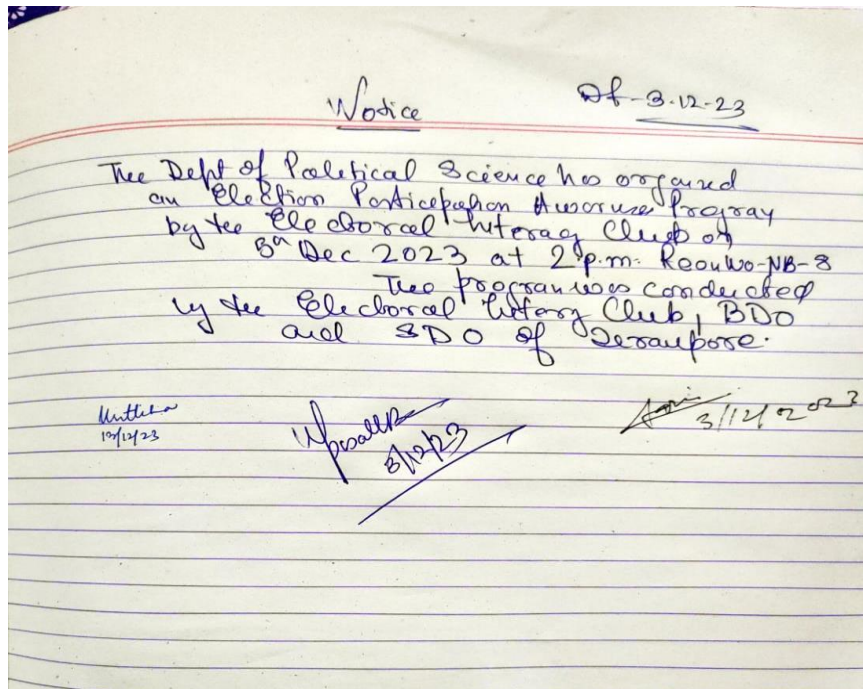 Notice
Dt-3.12-23
The Dept of Political Science has organised
an Election Participation Awareness Program
by the Electoral Literacy Club on
8th Dec 2023 at 2 p.m. Room No-NB-8
The program was conducted
by the Electoral Literary Club, BDO
and SDO of Serampore.
3/12/2023
13/12/23
3/12/23